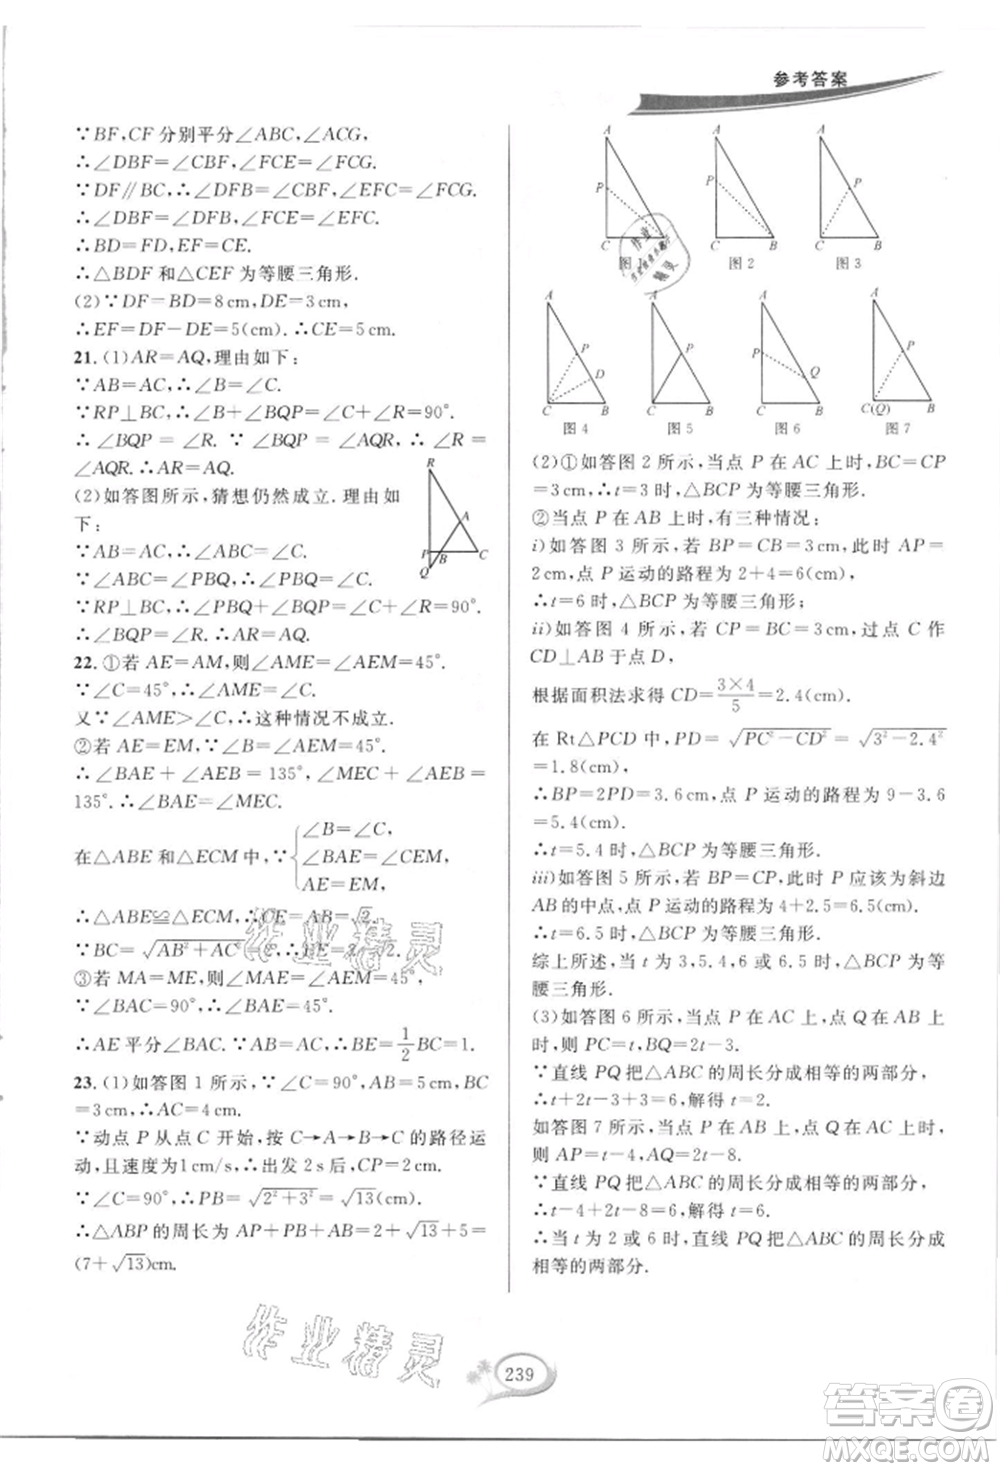 参考答案
∵BF,CF 分别平分∠ABC,∠ACG,
∴∠DBF=∠CBF,∠FCE=∠FCG.
∵DF∥BC,∴∠DFB=∠CBF,∠EFC=∠FCG.
∴∠DBF=∠DFB,∠FCE=∠EFC.
∴BD=FD,EF=CE.
∴△BDF和△CEF为等腰三角形.
(2)∵DF=BD=8cm,DE=3cm,
∴EF=DF-DE=5(cm).∴CE=5cm.
21.(1)AR=AQ,理由如下:
∵AB=AC,∴∠B=∠C.
∵RP⊥BC,∴∠B+∠BQP=∠C+∠R=90°.
∴∠BQP=∠R.∵∠BQP=∠AQR,∴∠R=
∠AQR.∴AR=AQ.
(2)如答图所示,猜想仍然成立.理由如
下:
∵AB=AC,∴∠ABC=∠C.
∵∠ABC=∠PBQ,∴∠PBQ=∠C.
∵RP⊥BC,∴∠PBQ+∠BQP=∠C+∠R=90°.
∴∠BQP=∠R.∴AR=AQ.
R
A
P B C
Q
22.①若AE=AM,则∠AME=∠AEM=45°.
∵∠C=45°,∴∠AME=∠C.
又∵∠AME>∠C,∴这种情况不成立.
②若AE=EM,∵∠B=∠AEM=45°.
∴∠BAE+∠AEB=135°,∠MEC+∠AEB=
135°.∴∠BAE=∠MEC.
在△ABE和△ECM中,∵{∠B=∠C,
∠BAE=∠CEM,
AE=EM,
∴△ABE≌△ECM,∴CE=AB=√2.
∵BC=√AB²+AC²=2,∴BE=2-√2.
③若MA=ME,∵∠MAE=∠AEM=45°,
∵∠BAC=90°,∴∠BAE=45°.
∴AE平分∠BAC.∵AB=AC,∴BE=1/2BC=1.
23.(1)如答图1所示,∵∠C=90°,AB=5cm,BC
=3cm,∴AC=4cm.
∵动点P从点C开始,按C→A→B→C的路径运
动,且速度为1cm/s,∴出发2s后,CP=2cm.
∵∠C=90°,∴PB=√2²+3²=√13(cm)
∴△ABP的周长为AP+PB+AB=2+√13+5=
(7+√13)cm.
A A A
P P P
C C B C B
图2 图3
A A A A
P P P P
D Q
C B C B C B C(Q) B
图4 图5 图6 图7
(2)①如答图2所示,当点P在AC上时,BC=CP
=3cm,∴t=3时,△BCP为等腰三角形.
②当点P在AB上时,有三种情况:
i)如答图3所示,若BP=CB=3cm,此时AP=
2cm,点P运动的路程为2+4=6(cm),
∴t=6时,△BCP为等腰三角形;
ii)如答图4所示,若CP=BC=3cm,过点C作
CD⊥AB于点D,
根据面积法求得CD=3×4/5=2.4(cm).
在Rt△PCD中,PD=√PC²-CD²=√3²-2.4²
=1.8(cm)
∴BP=2PD=3.6cm,点P运动的路程为9-3.6
=5.4(cm).
∴t=5.4时,△BCP为等腰三角形.
iii)如答图5所示,若BP=CP,此时P应该为斜边
AB的中点,点P运动的路程为4+2.5=6.5(cm).
∴t=6.5时,△BCP为等腰三角形.
综上所述,当t为3,5.4,6或6.5时,△BCP为等
腰三角形.
(3)如答图6所示,当点P在AC上,点Q在AB上
时,则PC=t,BQ=2t-3.
∵直线PQ把△ABC的周长分成相等的两部分,
∴t+2t-3+3=6,解得t=2.
如答图7所示,当点P在AB上,点Q在AC上时,
则AP=t-4,AQ=2t-8.
∵直线PQ把△ABC的周长分成相等的两部分,
∴t-4+2t-8=6.解得t=6.
∴当t为2或6时,直线PQ把△ABC的周长分成
相等的两部分.
作业精灵
作业精灵
239
答案卷
MXQE.COM